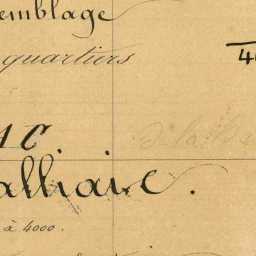 emblage
quartiers
40
1C
alliaire.
à 4000.